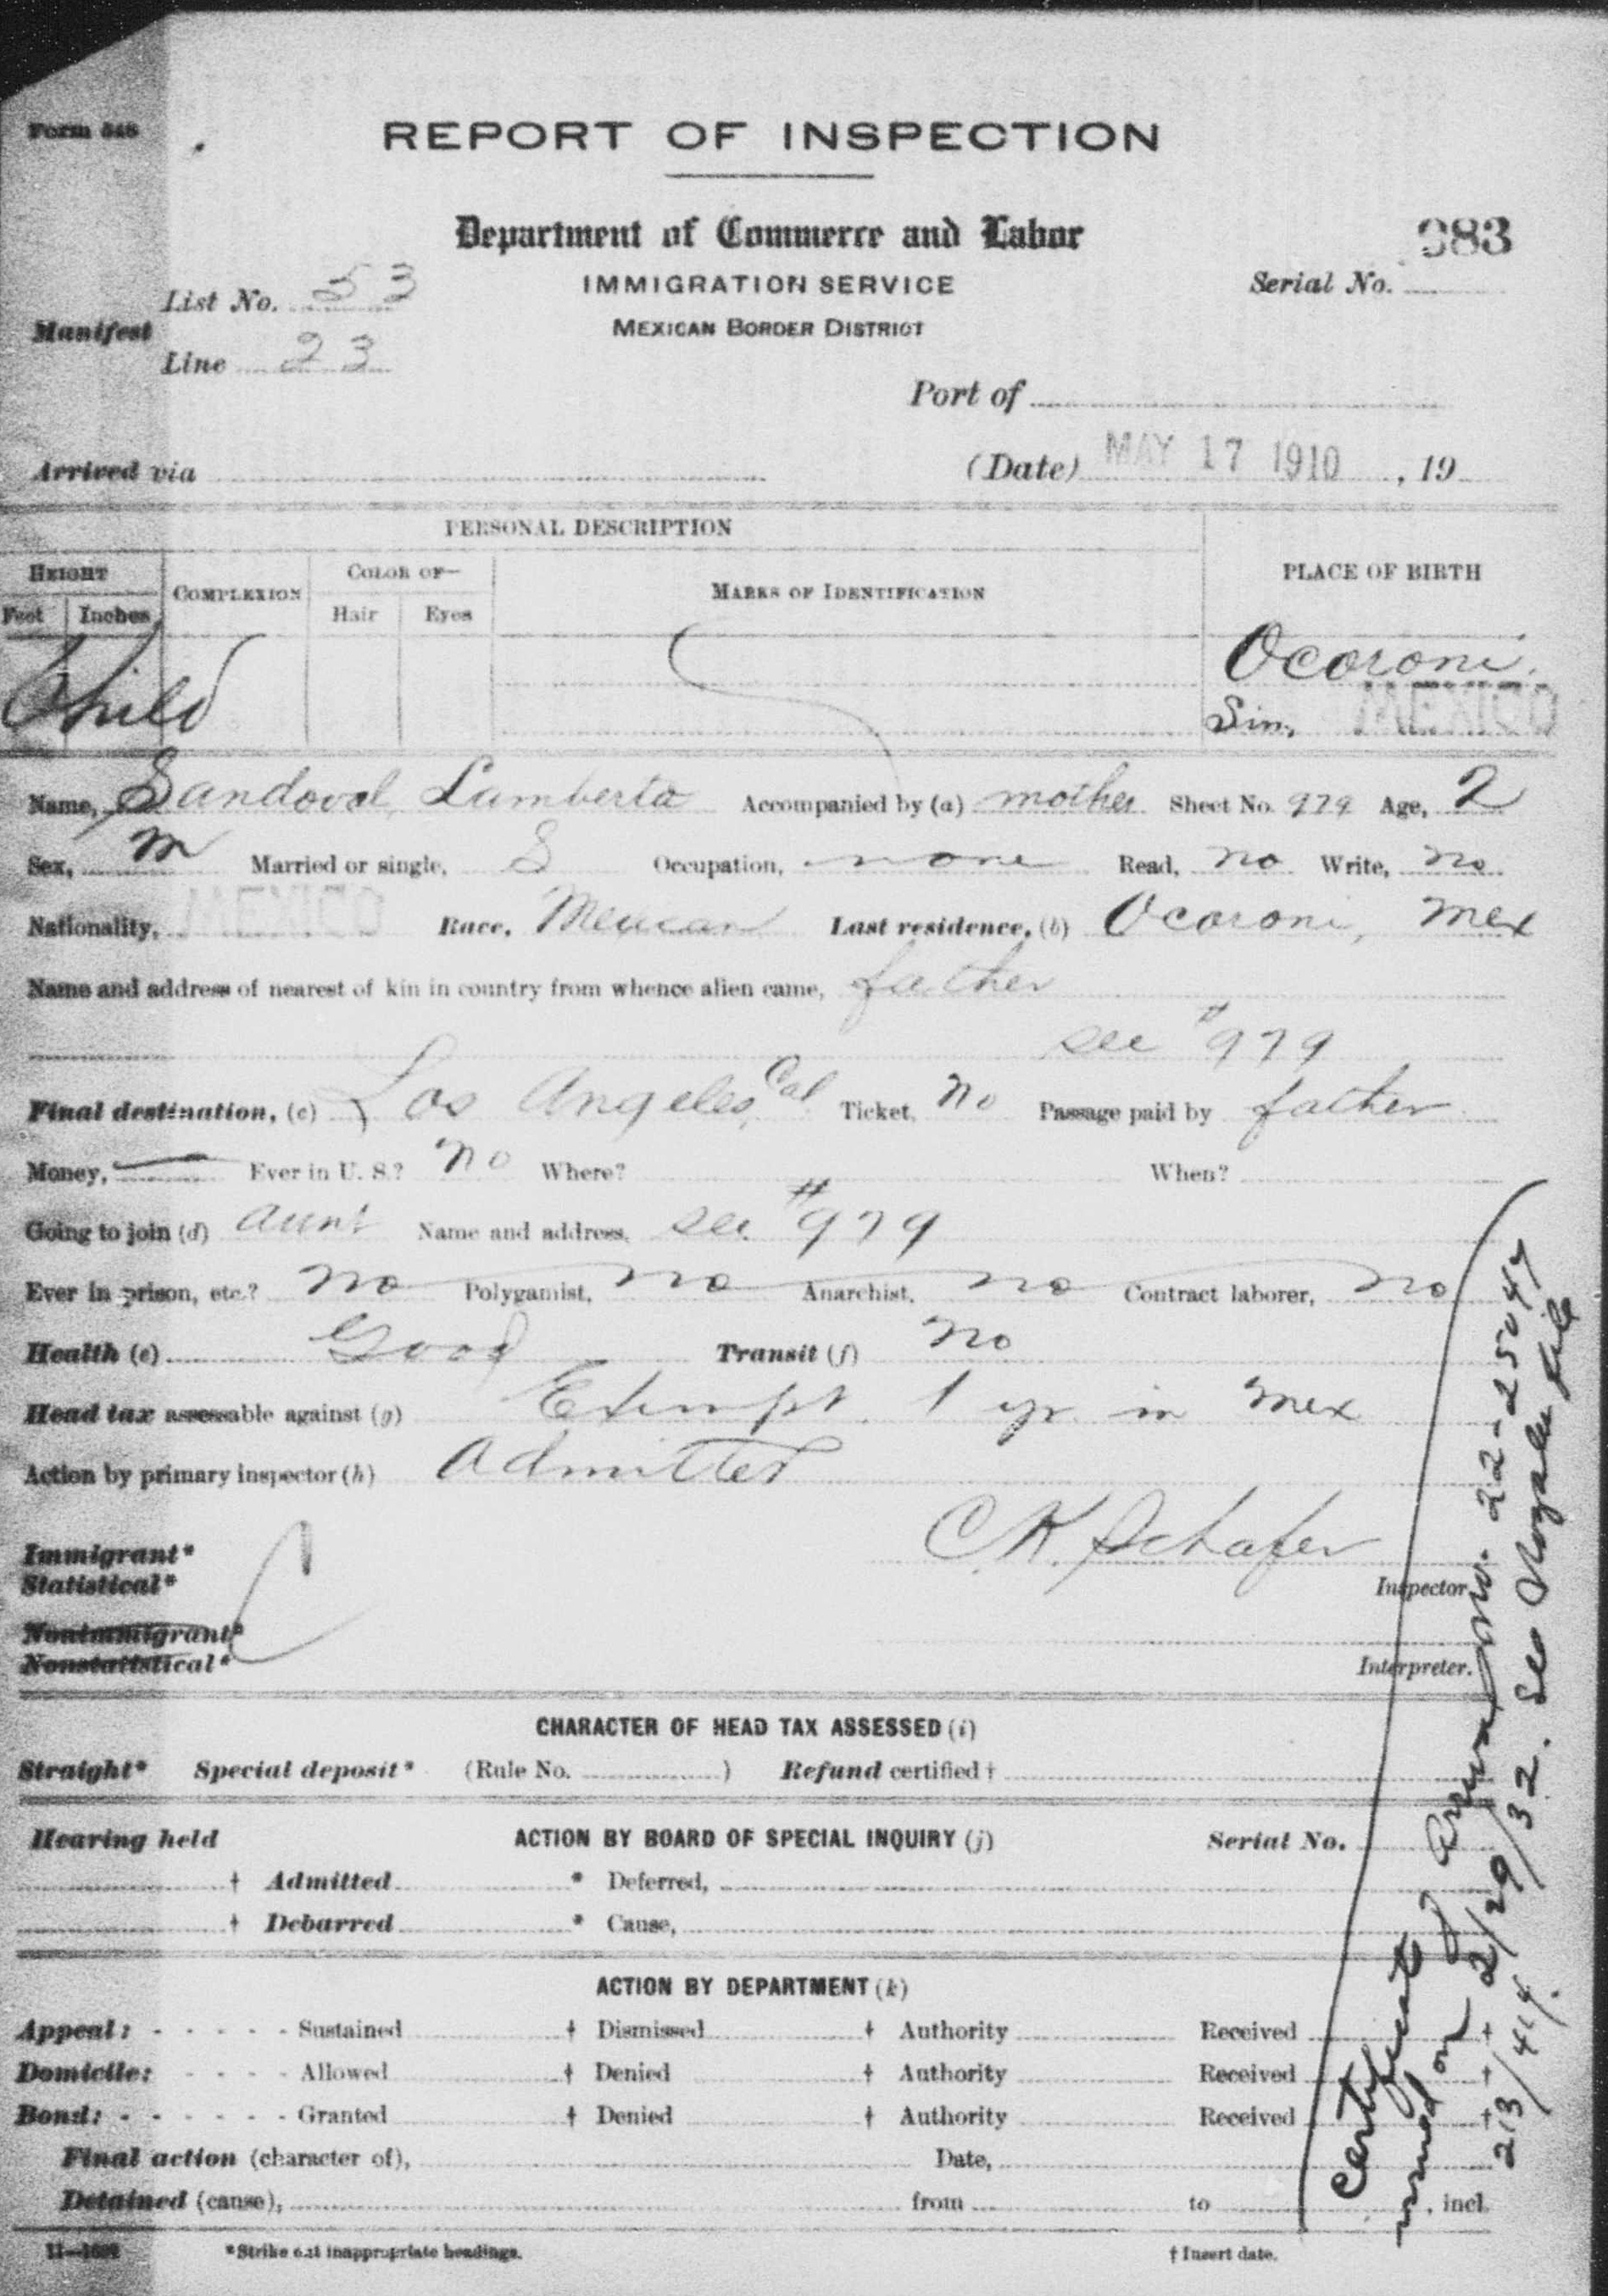 Form 548
REPORT OF INSPECTION
Department of Commerce and Labor
983
IMMIGRATION SERVICE
Serial No.
MEXICAN BORDER DISTRICT
Manifest
List No. 53
Line 23
Port of
Arrived via
(Date) MAY 17 1910, 19
PERSONAL DESCRIPTION
PLACE OF BIRTH
HEIGHT
COMPLEXION
COLOR OF—
MARKS OF IDENTIFICATION
Feet Inches
Hair Eyes
Child
Ocoroni,
Sin, MEXICO
Name, Sandoval, Lamberto Accompanied by (a) mother Sheet No. 979 Age, 2
Sex, m Married or single, S Occupation, none Read, no Write, no
Nationality, MEXICO Race, Mexican Last residence, (b) Ocoroni, Mex
Name and address of nearest of kin in country from whence alien came, father
see #979
Final destination, (c) Los Angeles, Cal Ticket, no Passage paid by father
Money, — Ever in U. S.? no Where? When?
Going to join (d) aunt Name and address, see #979
Ever in prison, etc.? no Polygamist, no Anarchist, no Contract laborer, no
Health (e) Good Transit (f) no
Head tax assessable against (g) Exempt. 1 yr. in Mex
Action by primary inspector (h) Admitted
C.K. Schafer
Immigrant*
Statistical*
Inspector.
Nonimmigrant*
Nonstatistical*
Interpreter.
CHARACTER OF HEAD TAX ASSESSED (i)
Straight* Special deposit* (Rule No. ) Refund certified †
Hearing held ACTION BY BOARD OF SPECIAL INQUIRY (j) Serial No.
† Admitted * Deferred,
† Debarred * Cause,
ACTION BY DEPARTMENT (k)
Appeal: - - - - - Sustained † Dismissed † Authority Received †
Domicile: - - - - Allowed † Denied † Authority Received †
Bond: - - - - - - Granted † Denied † Authority Received †
Final action (character of), Date,
Detained (cause), from to , incl.
*Strike out inappropriate headings.
† Insert date.
Certificate of No. 22-25047
issued on 2/29/32. See Nogales file
213/44.